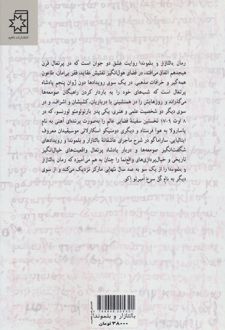 انتشارات ناهید
رمان بالتازار و بلموندا روایت عشق دو جوان است که در پرتغال قرن
هیجدهم اتفاق می‌افتد، در فضای هول‌انگیز تفتیش عقاید، فقر بی‌امان، طاعون
همه‌گیر و خرافات مذهبی. در یک سوی رویدادها دون ژوان پنجم پادشاه
پرتغال است که شب‌های خود را به باردار کردن راهبگان صومعه‌ها
می‌گذراند و روزهایش را در همنشینی با درباریان، کشیشان و اشراف، و در
سوی دیگر دو شخصیت علمی و هنری، یکی پدر بارتولومئو لورنسو، که در
۸ اوت ۱۷۰۹ نخستین سفینه فضایی عالم را به‌صورت پرنده‌ای آهنی به نام
پاسارولا به هوا فرستاد و دیگری دومنیکو اسکارلاتی موسیقیدان معروف
ایتالیایی. ساراماگو در شرح ماجرای عاشقانه بالتازار و بلموندا و رویدادهای
شگفت‌انگیز صومعه‌ها و دربار پادشاه پرتغال واقعیت‌های خیال‌انگیز
تاریخی و خیال‌پردازی‌های واقع‌نما را چنان به هم می‌آمیزد که رمان بالتازار
و بلموندا را از یک سو به صد سال تنهایی مارکز نزدیک می‌کند و از سوی
دیگر به نام گل سرخ امبرتو اکو.
بالتازار و بلموندا
۳۸۰۰۰ تومان